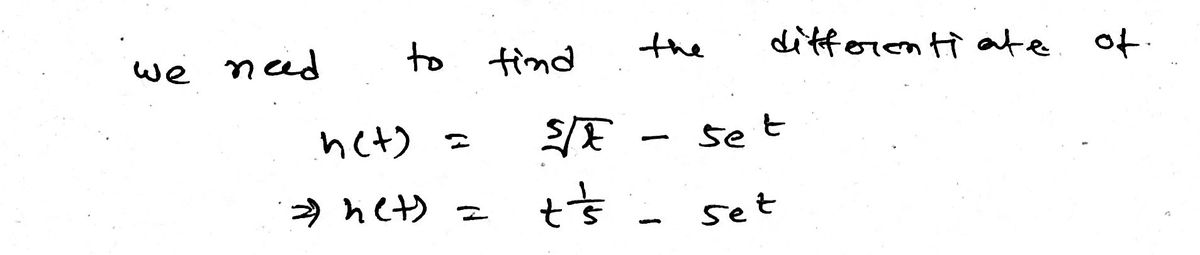 we need to find the differentiate of.
h(t) = ⁵√t - 5e^t
⇒ h(t) = t^(1/5) - 5e^t